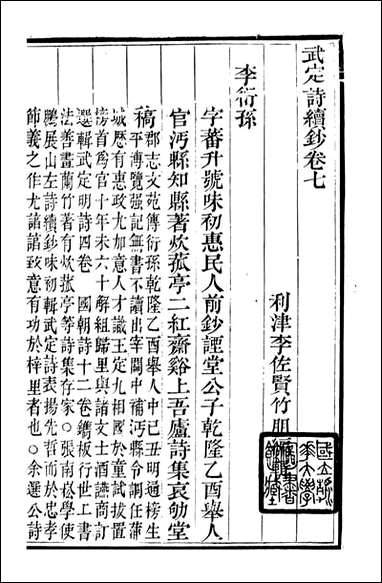 武定詩續鈔卷七
利津李佐賢竹朋
李衍孫
字蕃升號味初惠民人前鈔諲堂公子乾隆乙酉舉人
官沔縣知縣著炊菰亭二紅齋谿上吾廬詩集哀勉堂
稿
郡志文苑傳衍孫乾隆乙酉舉人中己丑明通榜生
平博覽强記無書不讀出宰關中補沔縣令調任蒲
城歷有惠政尤加意人才識王定九相國於童試拔置
榜首爲官十年未六十解組歸里與諸文士酒讌商訂
選輯武定明詩四卷 國朝詩十二卷鐫板行世工書
法善畫蘭竹著有炊菰亭等詩集存家○張南崧學使
鵬展山左詩續鈔味初輯武定詩表揚先哲而於忠孝
節義之作尤諄諄致意有功於梓里者也○余選公詩